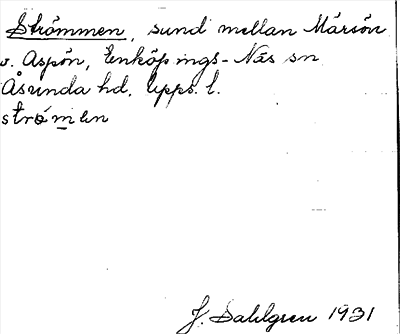 Strömmen, sund mellan Mårsön
o. Aspön, Enköpings-Näs sn
Åsunda hd, Upps. l.
strömen
J. Sahlgren 1931